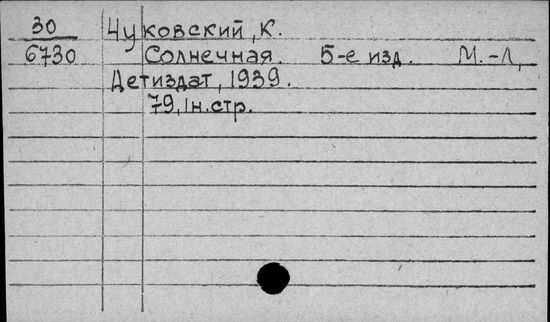 30 Чуковский, К.
6730 Солнечная. 5-е изд. М.-Л,
Детиздат, 1939.
79, Iн.стр.